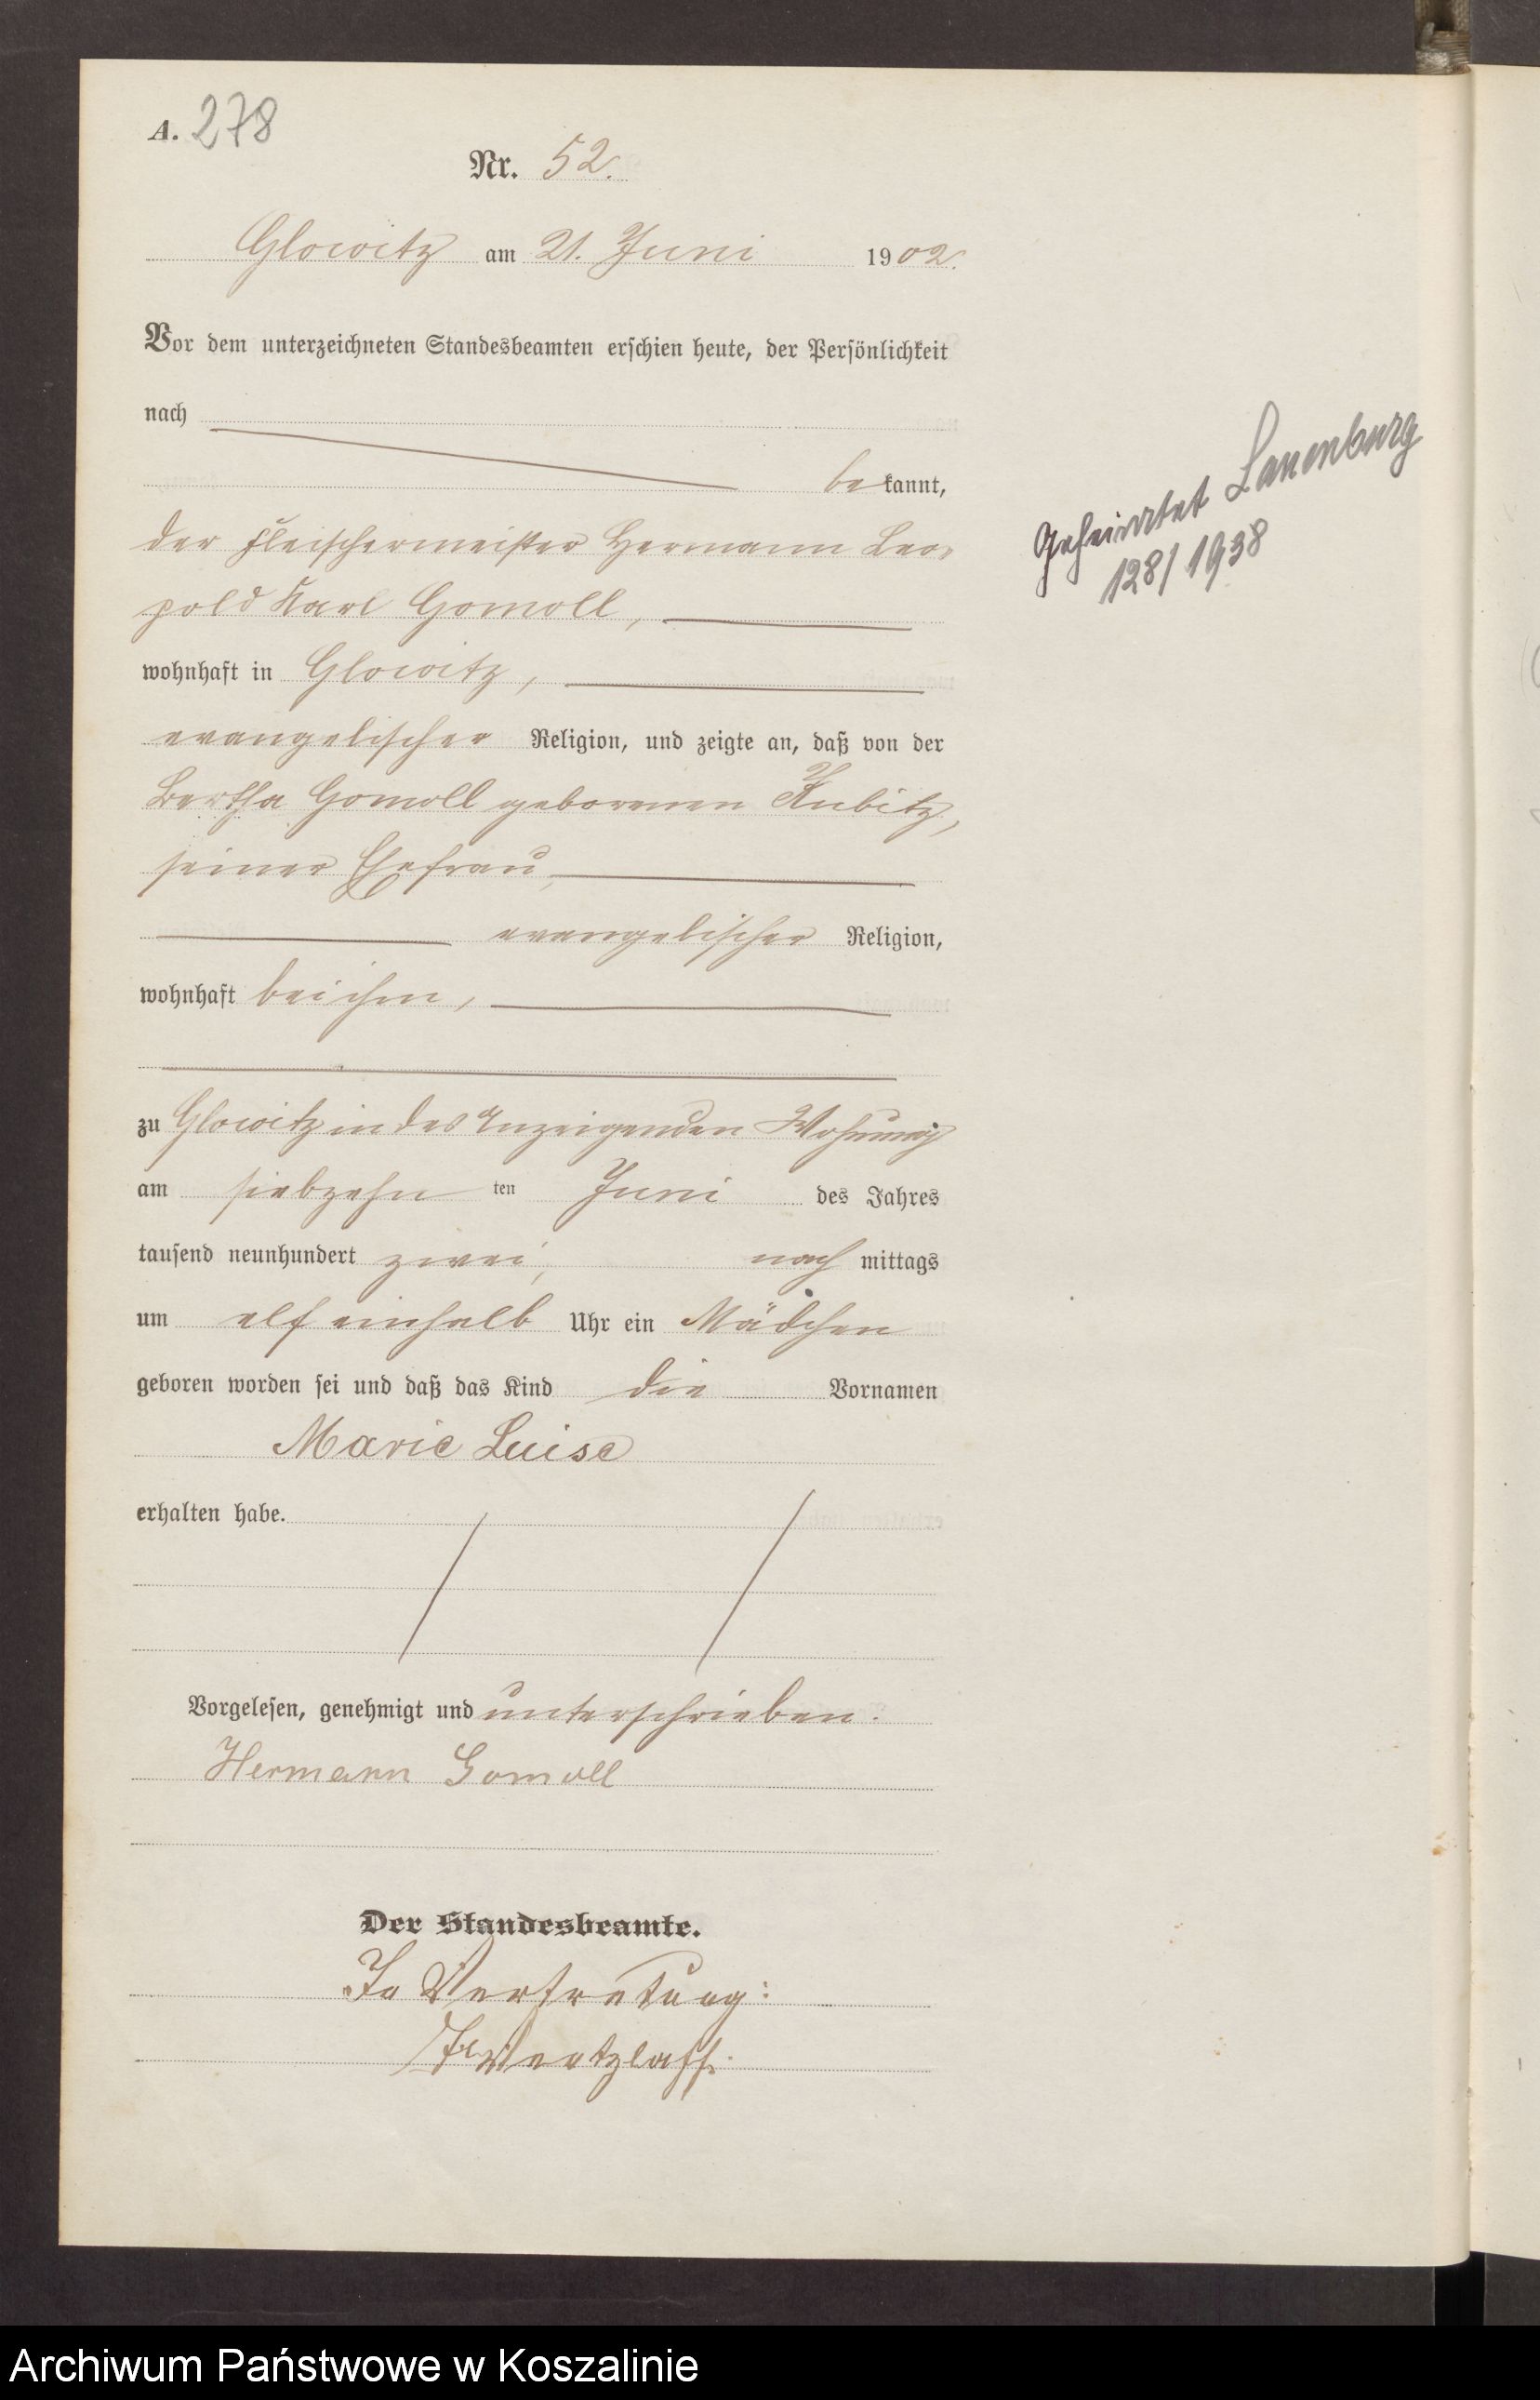 A. 278
Nr. 52.
Glowitz am 21. Juni 1902.
Vor dem unterzeichneten Standesbeamten erschien heute, der Persönlichkeit
nach
bekannt,
der Fleischermeister Hermann Leo-
pold Karl Gomoll,
wohnhaft in Glowitz,
evangelischer Religion, und zeigte an, daß von der
Bertha Gomoll geborenen Kubitz,
seiner Ehefrau,
evangelischer Religion,
wohnhaft bei ihm,
zu Glowitz in des Anzeigenden Wohnung
am siebzehn ten Juni des Jahres
tausend neunhundert zwei, nach mittags
um elf einhalb Uhr ein Mädchen
geboren worden sei und daß das Kind die Vornamen
Marie Luise
erhalten habe.
Vorgelesen, genehmigt und unterschrieben.
Hermann Gomoll
Der Standesbeamte.
In Vertretung:
Wentzlaff.
Geheiratet Lauenburg
128/1938
Archiwum Państwowe w Koszalinie